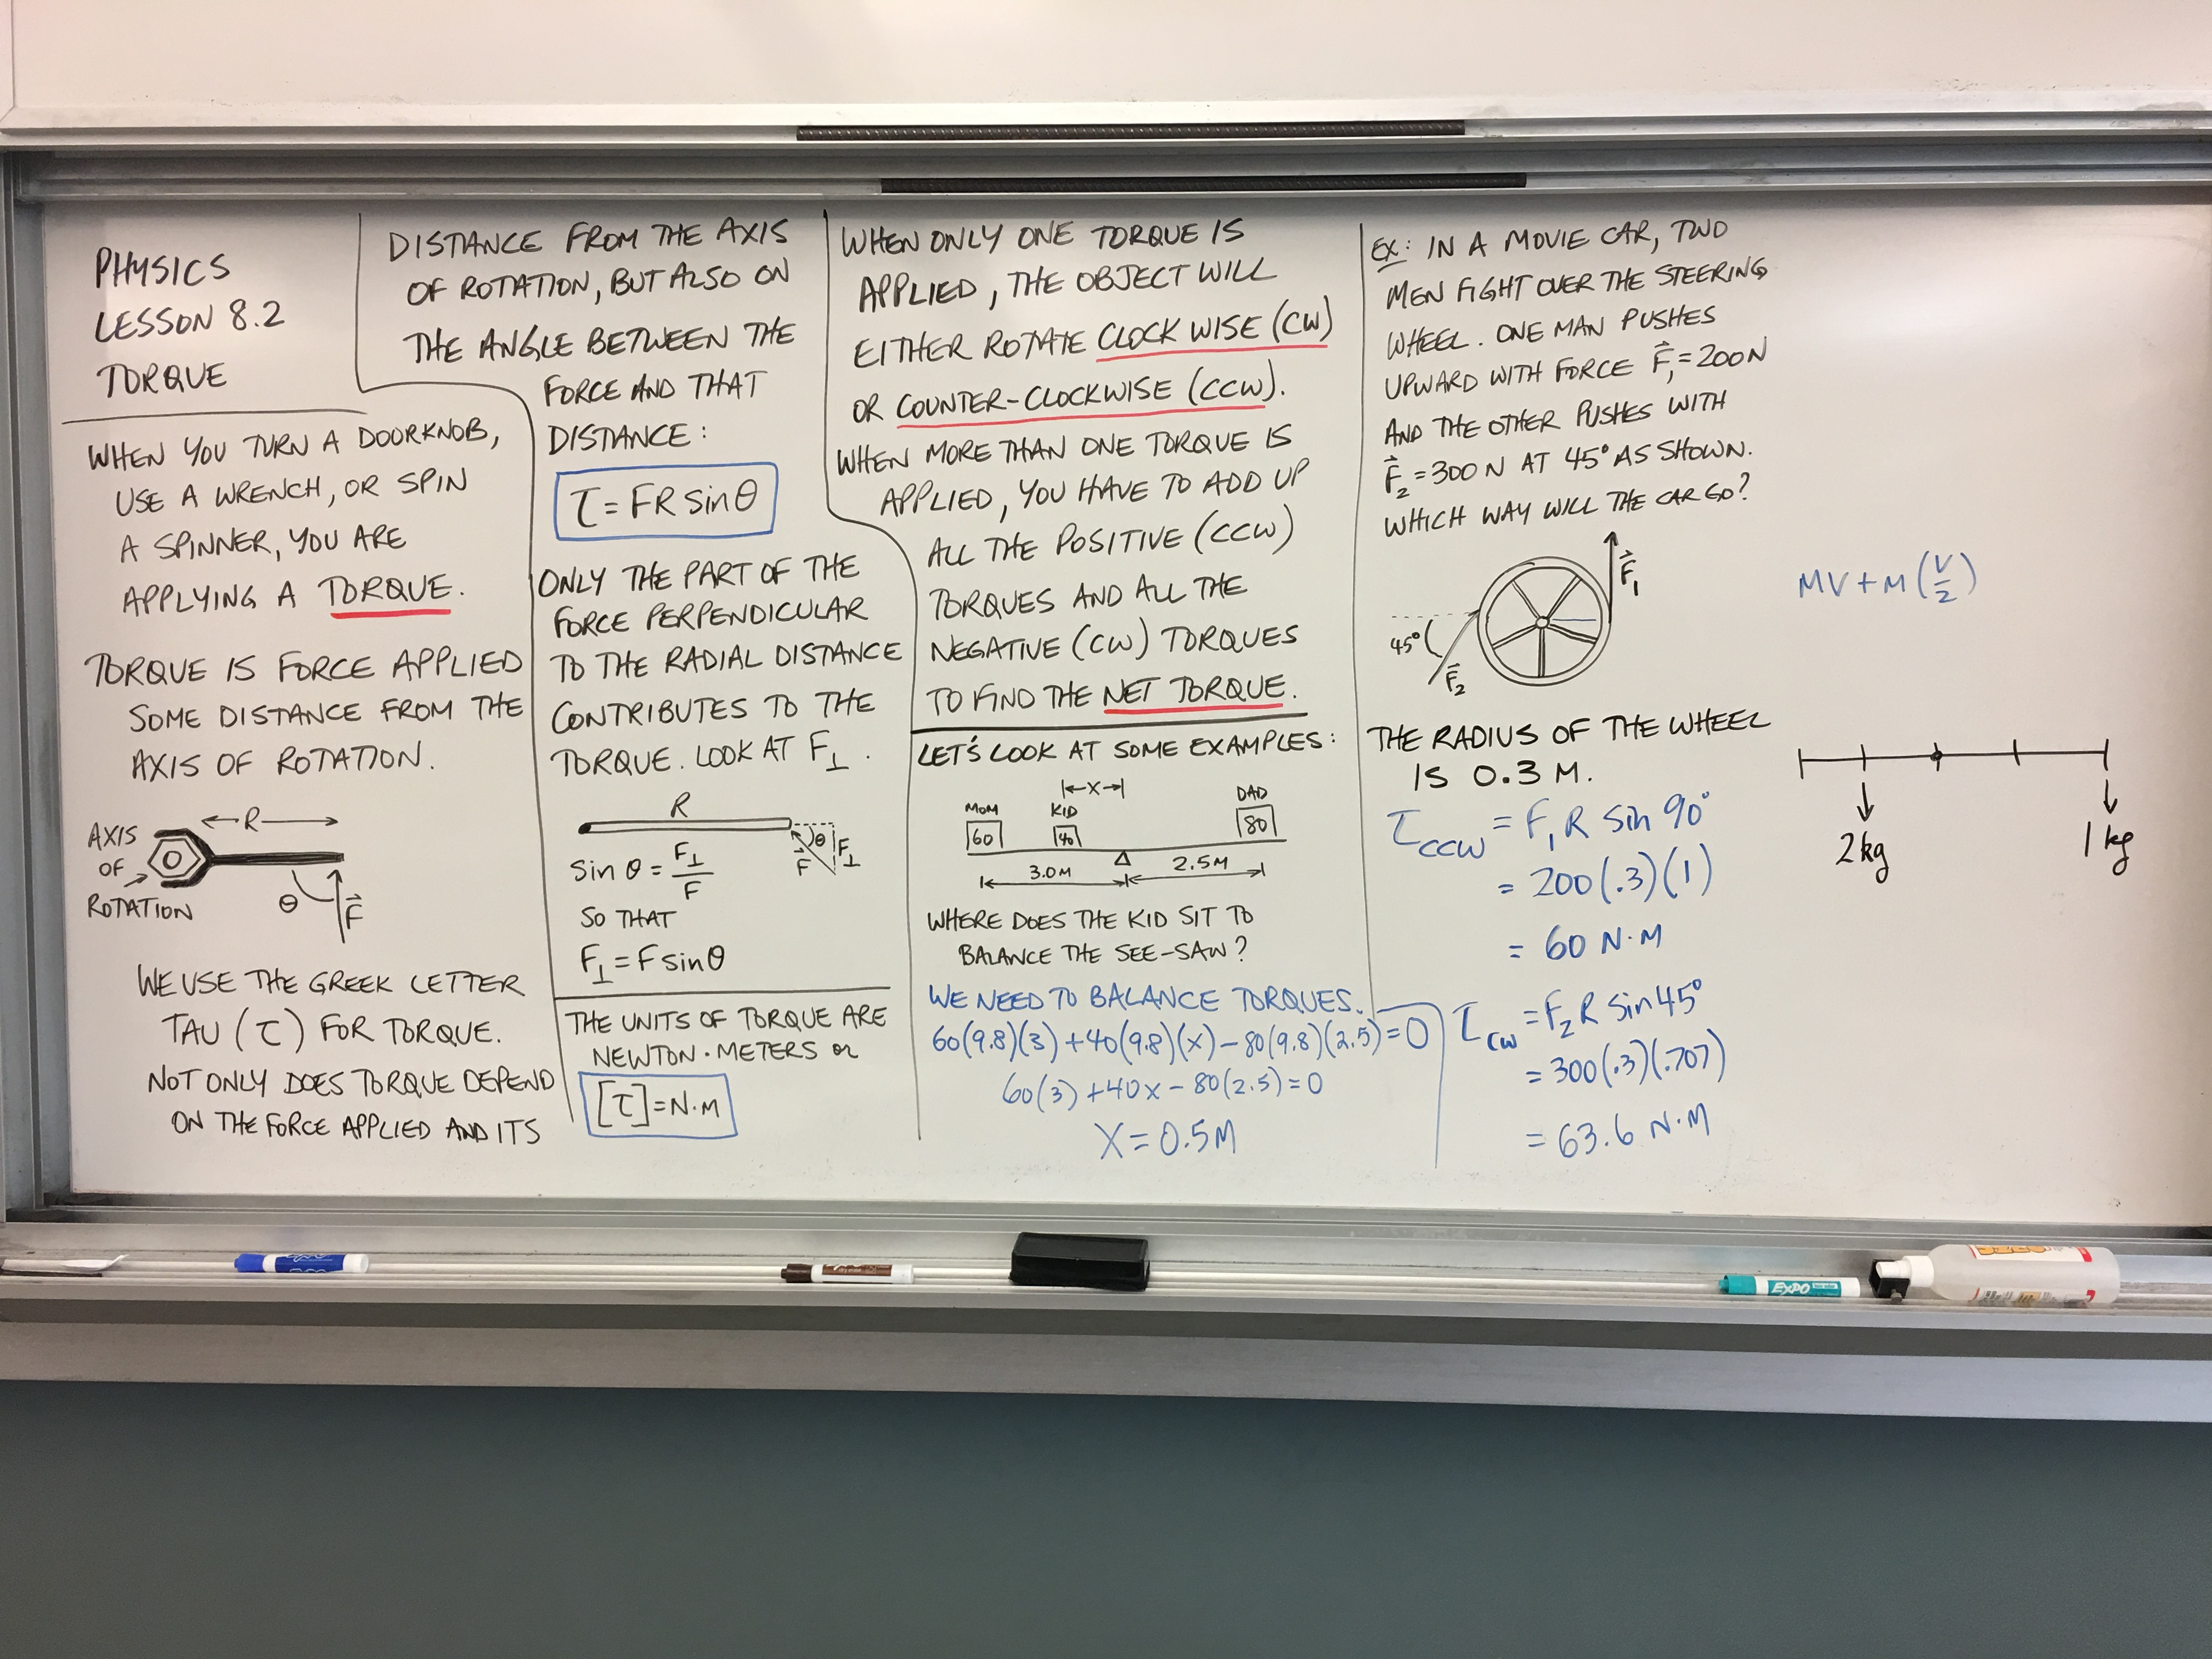 PHYSICS
LESSON 8.2
TORQUE
WHEN YOU TURN A DOORKNOB,
USE A WRENCH, OR SPIN
A SPINNER, YOU ARE
APPLYING A TORQUE.
TORQUE IS FORCE APPLIED
SOME DISTANCE FROM THE
AXIS OF ROTATION.
AXIS
OF
ROTATION
R
θ
F⃗
WE USE THE GREEK LETTER
TAU (τ) FOR TORQUE.
NOT ONLY DOES TORQUE DEPEND
ON THE FORCE APPLIED AND ITS
DISTANCE FROM THE AXIS
OF ROTATION, BUT ALSO ON
THE ANGLE BETWEEN THE
FORCE AND THAT
DISTANCE:
τ = FR sin θ
ONLY THE PART OF THE
FORCE PERPENDICULAR
TO THE RADIAL DISTANCE
CONTRIBUTES TO THE
TORQUE. LOOK AT F⊥.
R
θ
F⃗
F⊥
sin θ = F⊥/F
SO THAT
F⊥ = F sin θ
THE UNITS OF TORQUE ARE
NEWTON·METERS or
[τ] = N·M
WHEN ONLY ONE TORQUE IS
APPLIED, THE OBJECT WILL
EITHER ROTATE CLOCKWISE (CW)
OR COUNTER-CLOCKWISE (CCW).
WHEN MORE THAN ONE TORQUE IS
APPLIED, YOU HAVE TO ADD UP
ALL THE POSITIVE (CCW)
TORQUES AND ALL THE
NEGATIVE (CW) TORQUES
TO FIND THE NET TORQUE.
LET'S LOOK AT SOME EXAMPLES:
X
MOM
60
KID
40
DAD
80
3.0M
2.5M
WHERE DOES THE KID SIT TO
BALANCE THE SEE-SAW?
WE NEED TO BALANCE TORQUES.
60(9.8)(3) + 40(9.8)(x) − 80(9.8)(2.5) = 0
60(3) + 40x − 80(2.5) = 0
X = 0.5M
EX: IN A MOVIE CAR, TWO
MEN FIGHT OVER THE STEERING
WHEEL. ONE MAN PUSHES
UPWARD WITH FORCE F⃗₁ = 200N
AND THE OTHER PUSHES WITH
F⃗₂ = 300 N AT 45° AS SHOWN.
WHICH WAY WILL THE CAR GO?
F⃗₁
45°
F⃗₂
THE RADIUS OF THE WHEEL
IS 0.3 M.
τCCW = F₁ R sin 90°
= 200(.3)(1)
= 60 N·M
τCW = F₂ R sin 45°
= 300(.3)(.707)
= 63.6 N·M
MV + M(V/2)
2kg
1kg
EXPO